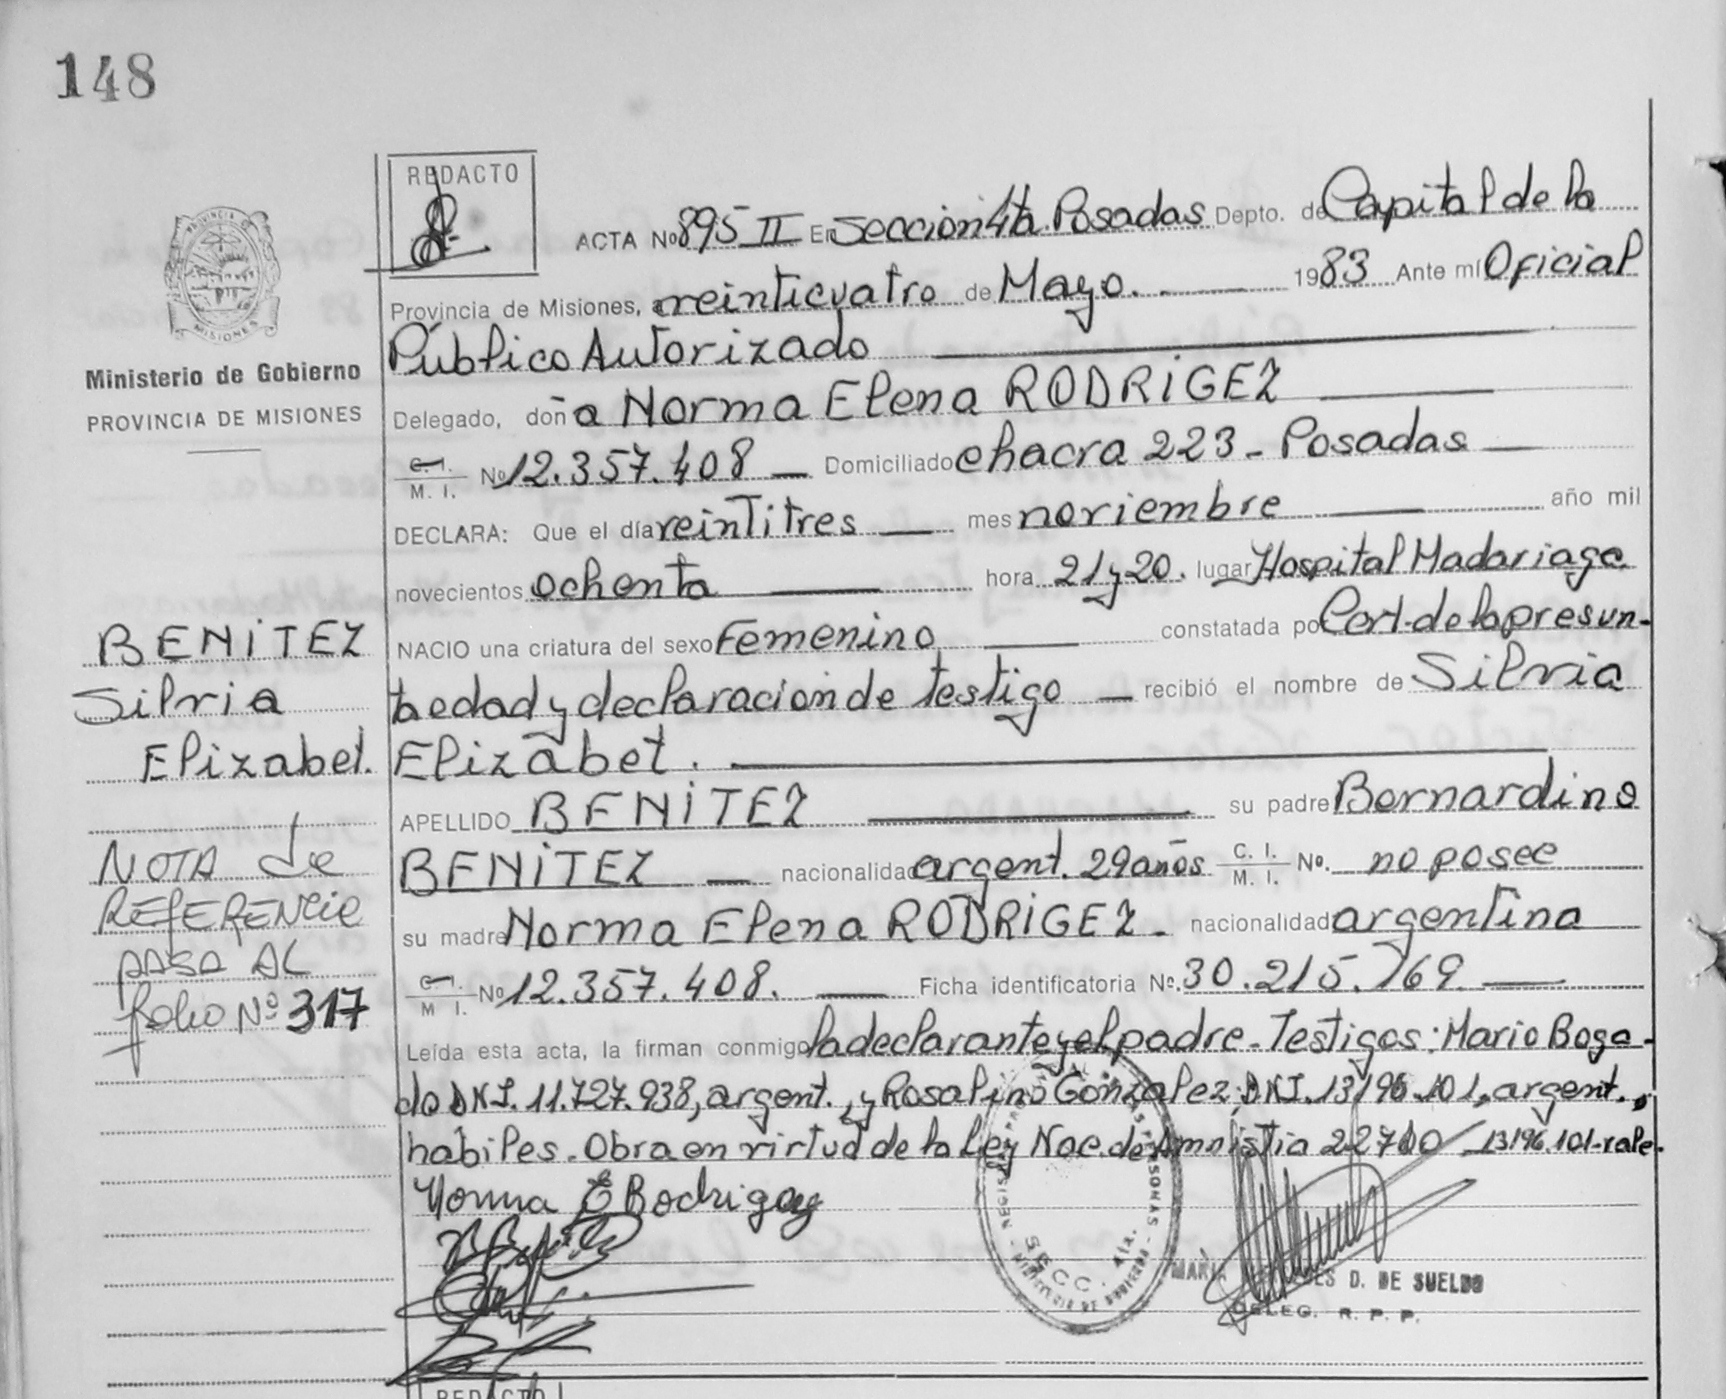 148
REDACTO
ACTA Nº 895 II En Seccion 4ta. Posadas Depto. de Capital de la
Provincia de Misiones, a veinticuatro de Mayo. 1983 Ante mí Oficial
Público Autorizado
Delegado, doña Norma Elena RODRIGEZ
C. I. M. I. Nº 12.357.408 Domiciliado chacra 223 - Posadas
DECLARA: Que el día veintitres mes noviembre año mil
novecientos ochenta hora 21 y 20. lugar Hospital Madariaga
NACIO una criatura del sexo Femenino constatada por Cert. de la presun-
ta edad y declaracion de testigo recibió el nombre de Silvia
Elizabet.
APELLIDO BENITEZ su padre Bernardino
BENITEZ nacionalidad argent. 29 años C. I. M. I. Nº. no posee
su madre Norma Elena RODRIGEZ - nacionalidad argentina
C. I. M I. Nº 12.357.408. Ficha identificatoria Nº. 30.215.769
Leída esta acta, la firman conmigo la declarante y el padre - Testigos: Mario Boga-
do DNI. 11.727.938, argent. y Rosalino Gonzalez, DNI. 13.196.101, argent.,
hábiles. Obra en virtud de la Ley Nac. de Amnistia 22710 - 13196.101-vale.
Norma E Rodrigez
PROVINCIA DE
MISIONES
Ministerio de Gobierno
PROVINCIA DE MISIONES
BENITEZ
Silvia
Elizabet.
NOTA de
REFERENCIA
PASA AL
folio Nº 317
PERSONAS
SECC. 4ta.
MINISTERIO DE GOBIERNO
D. DE SUELDO
DELEG. R. P. P.
REDACTO